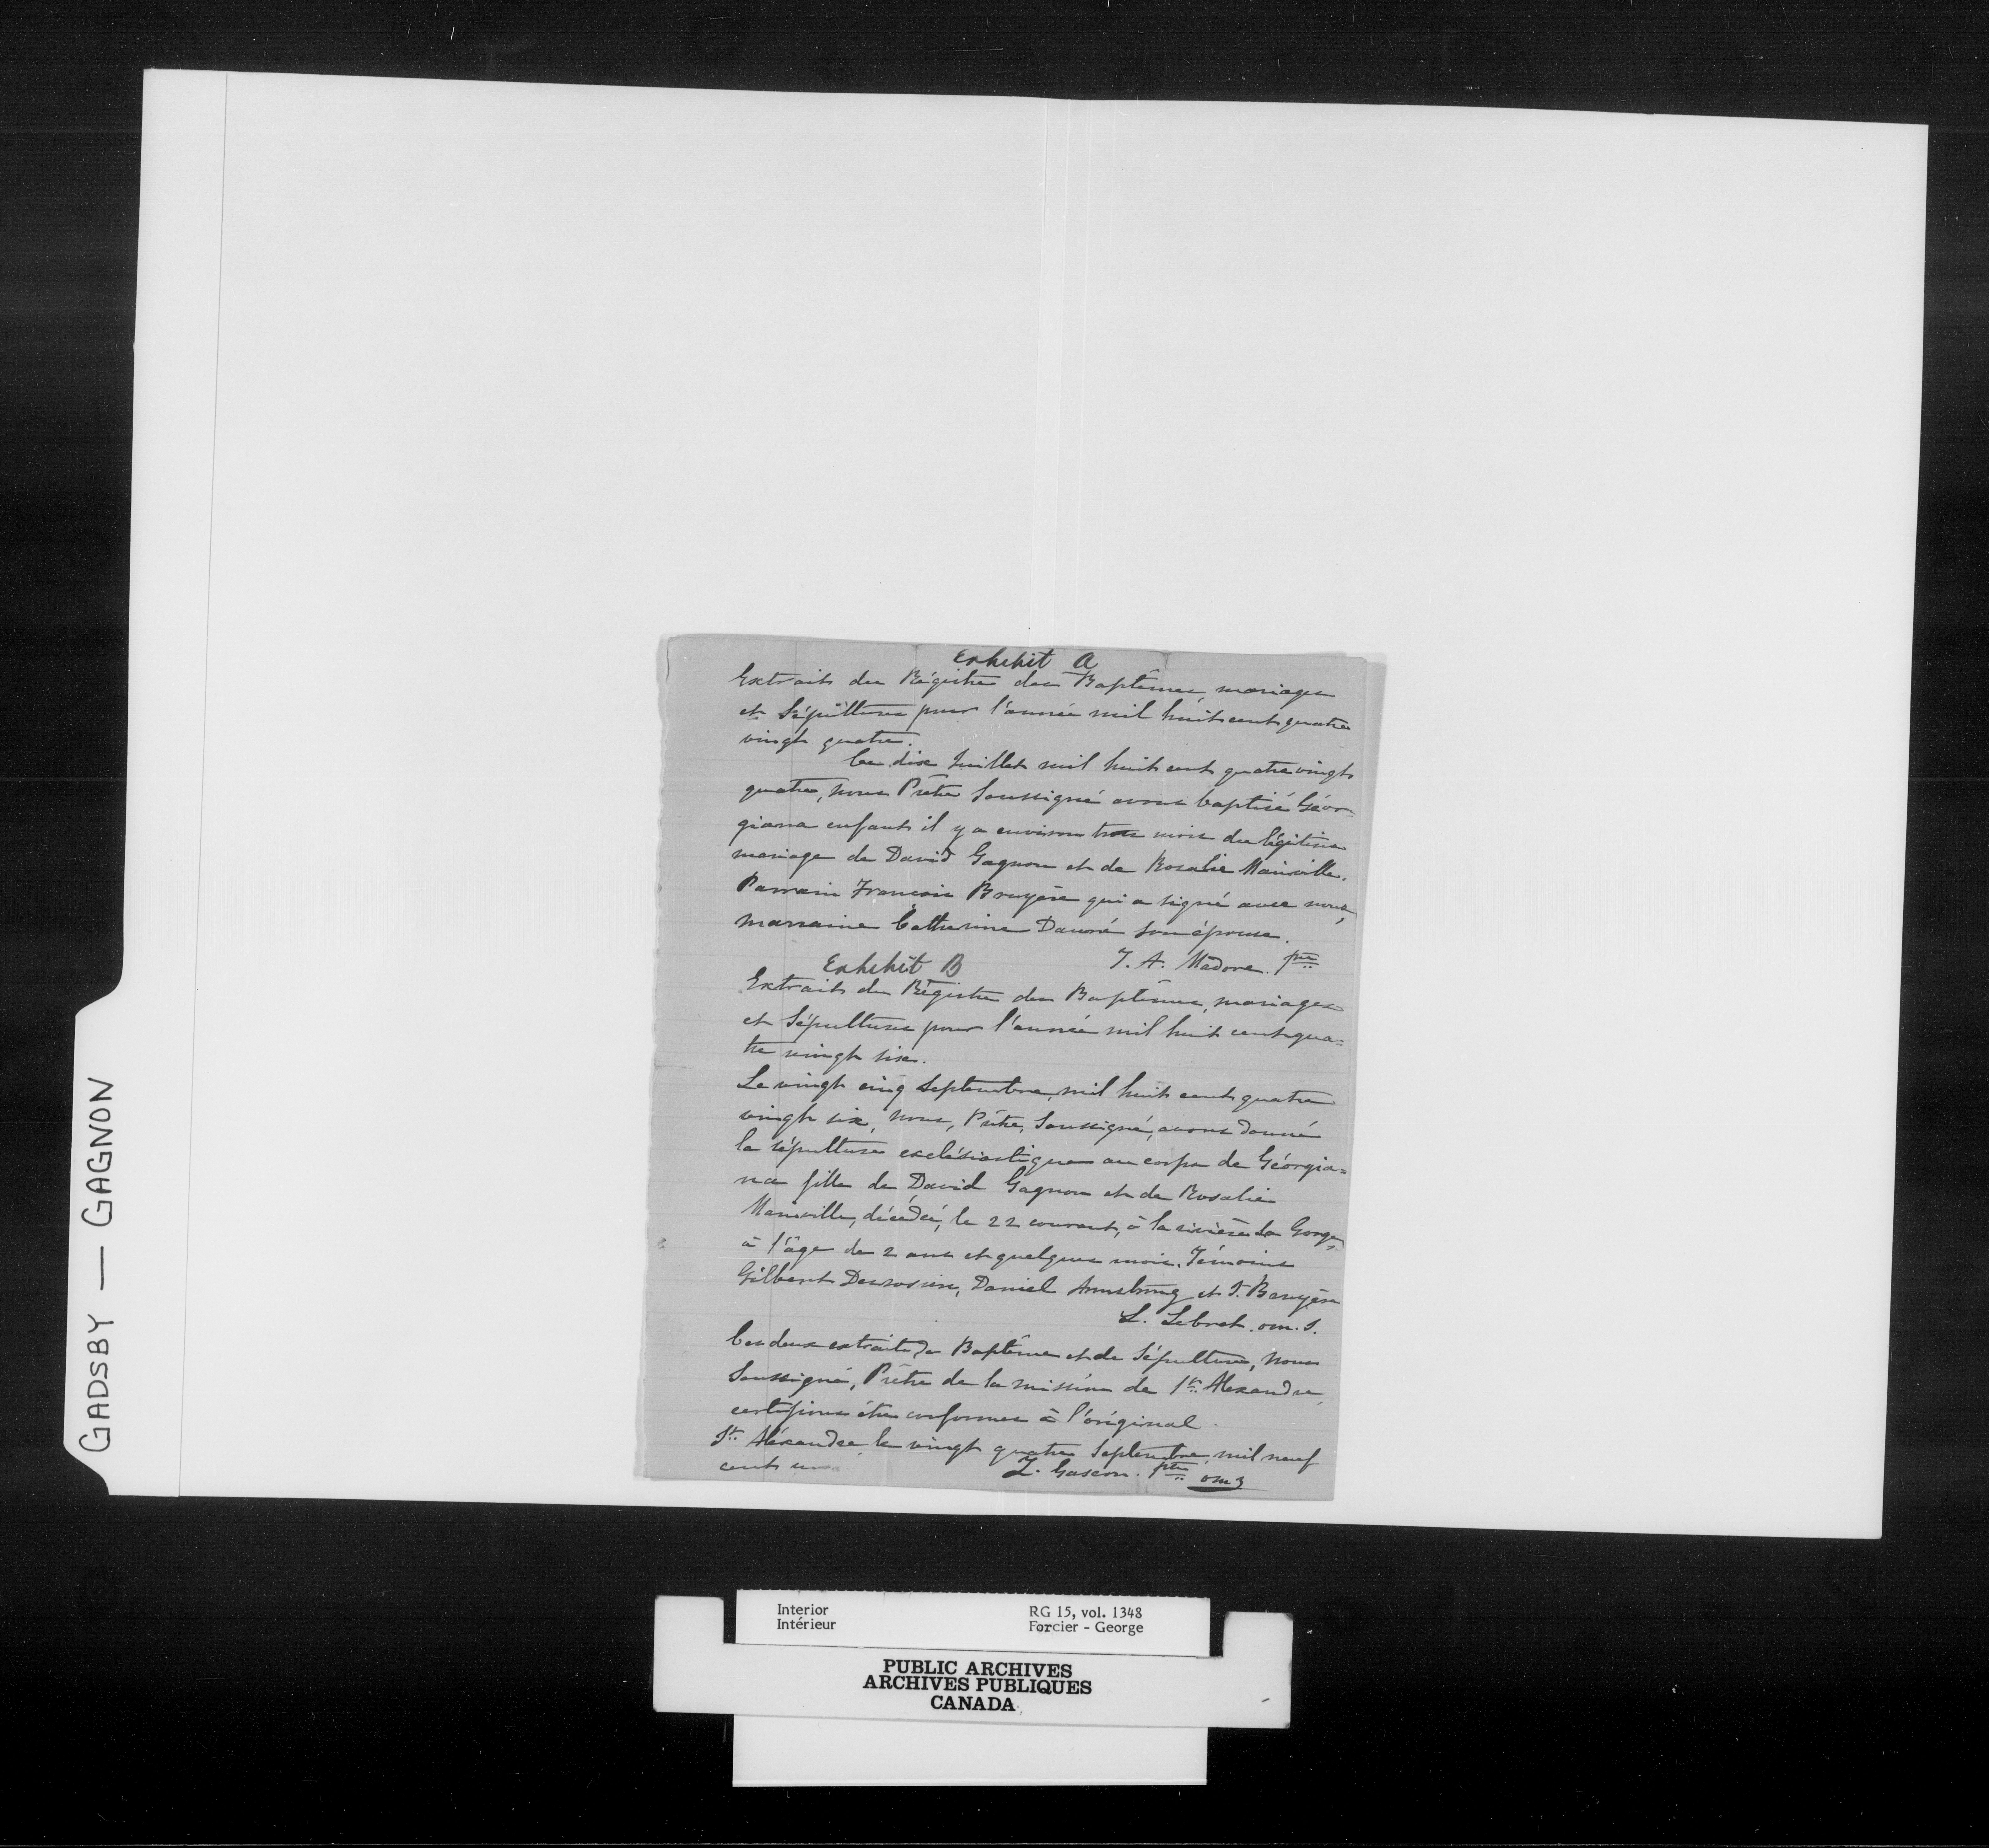 Exhibit A
Extraits du Régistre des Baptêmes, mariages
et Sépultures pour l'année mil huit cent quatre
vingt quatre.
Ce dix Juillet mil huit cent quatre vingt
quatre, nous Prêtre Soussigné avons baptisé Géor-
giana enfant il y a environ trois mois du légitime
mariage de David Gagnon et de Rosalie Mainville.
Parrain Francois Bruyère qui a signé avec nous,
marraine Catherine son épouse.
J. A. Madore. ptre
Exhibit B
Extraits du Régistre des Baptêmes, mariages
et Sépultures pour l'année mil huit cent qua=
tre vingt six.
Le vingt cinq Septembre, mil huit cent quatre
vingt six, nous, Prêtre, Soussigné, avons donné
la sépulture ecclésiastique au corps de Géorgia=
na fille de David Gagnon et de Rosalie
Mainville, décédée, le 22 courant, à la rivière La Gorge,
à l'âge de 2 ans et quelques mois. Témoins
Gilbert Desrosiers, Daniel Armstrong et F. Bruyère
L. Lebret. o.m.I.
Ces deux extraits de Baptême et de Sépulture, nous
Soussigné, Prêtre de la mission de St. Alexandre,
certifions être conformes à l'original.
St. Alexandre le vingt quatre Septembre, mil neuf
cent un
Z. Gascon. ptre omI
GADSBY — GAGNON
Interior RG 15, vol. 1348
Intérieur Forcier - George
PUBLIC ARCHIVES
ARCHIVES PUBLIQUES
CANADA